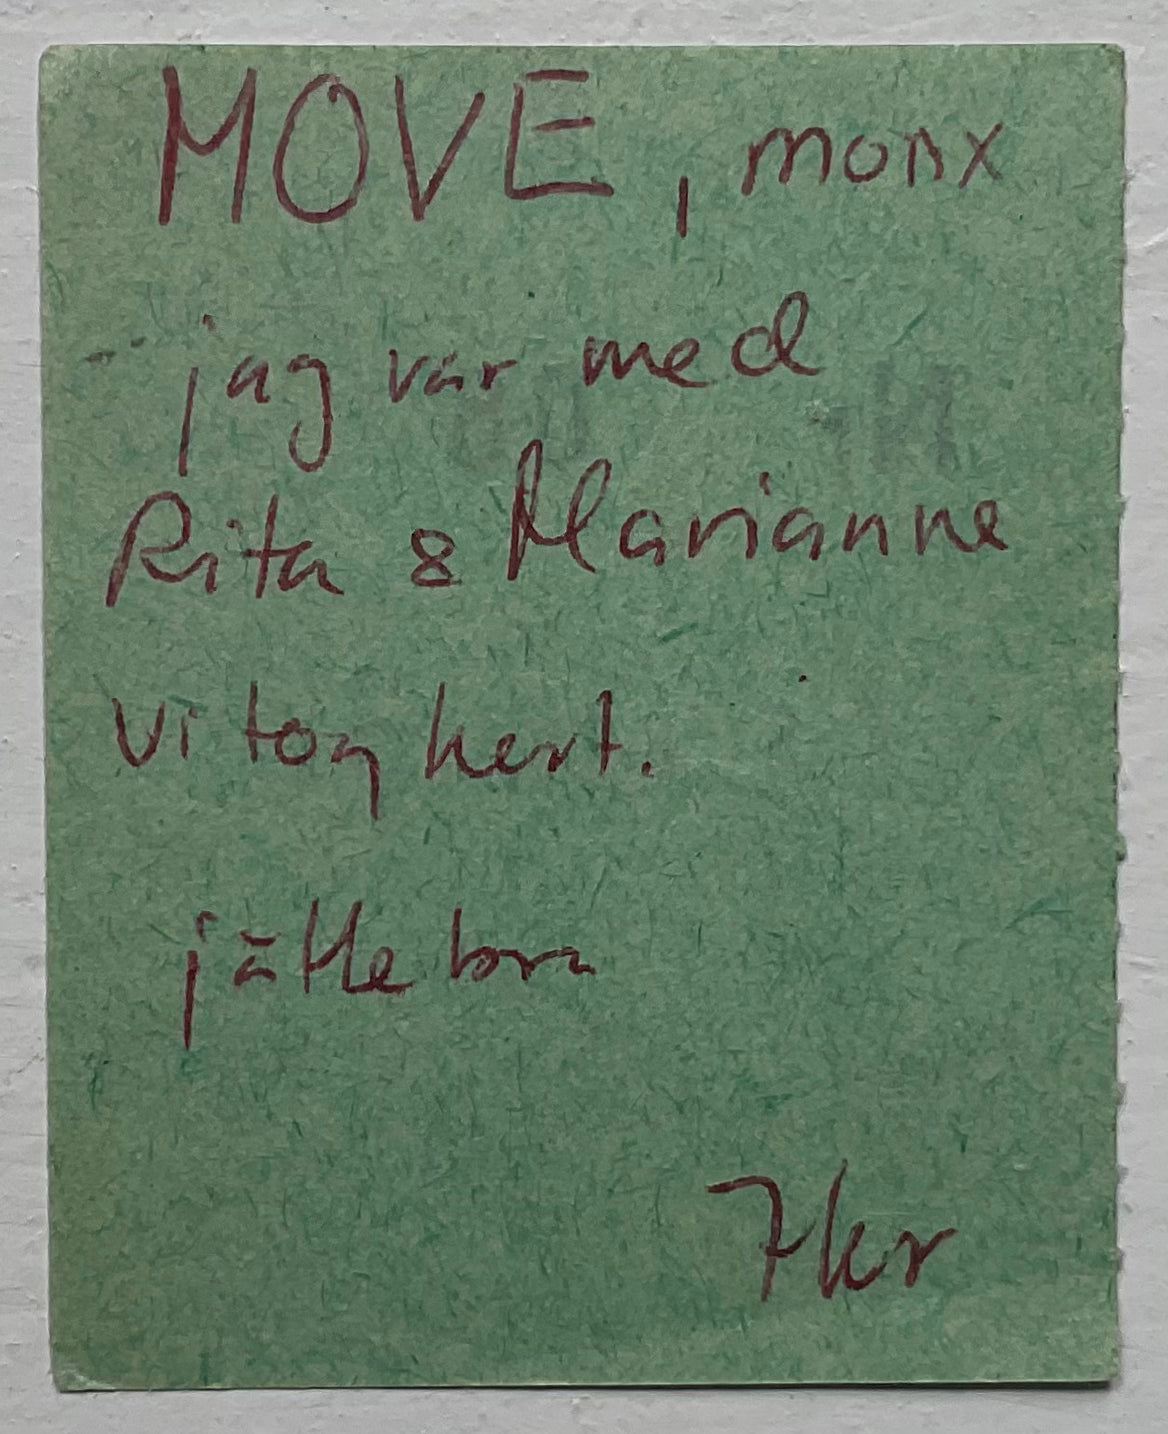 MOVE, monx
- jag var med
Rita & Marianne
vi tog kert.
jätte bra
7kr